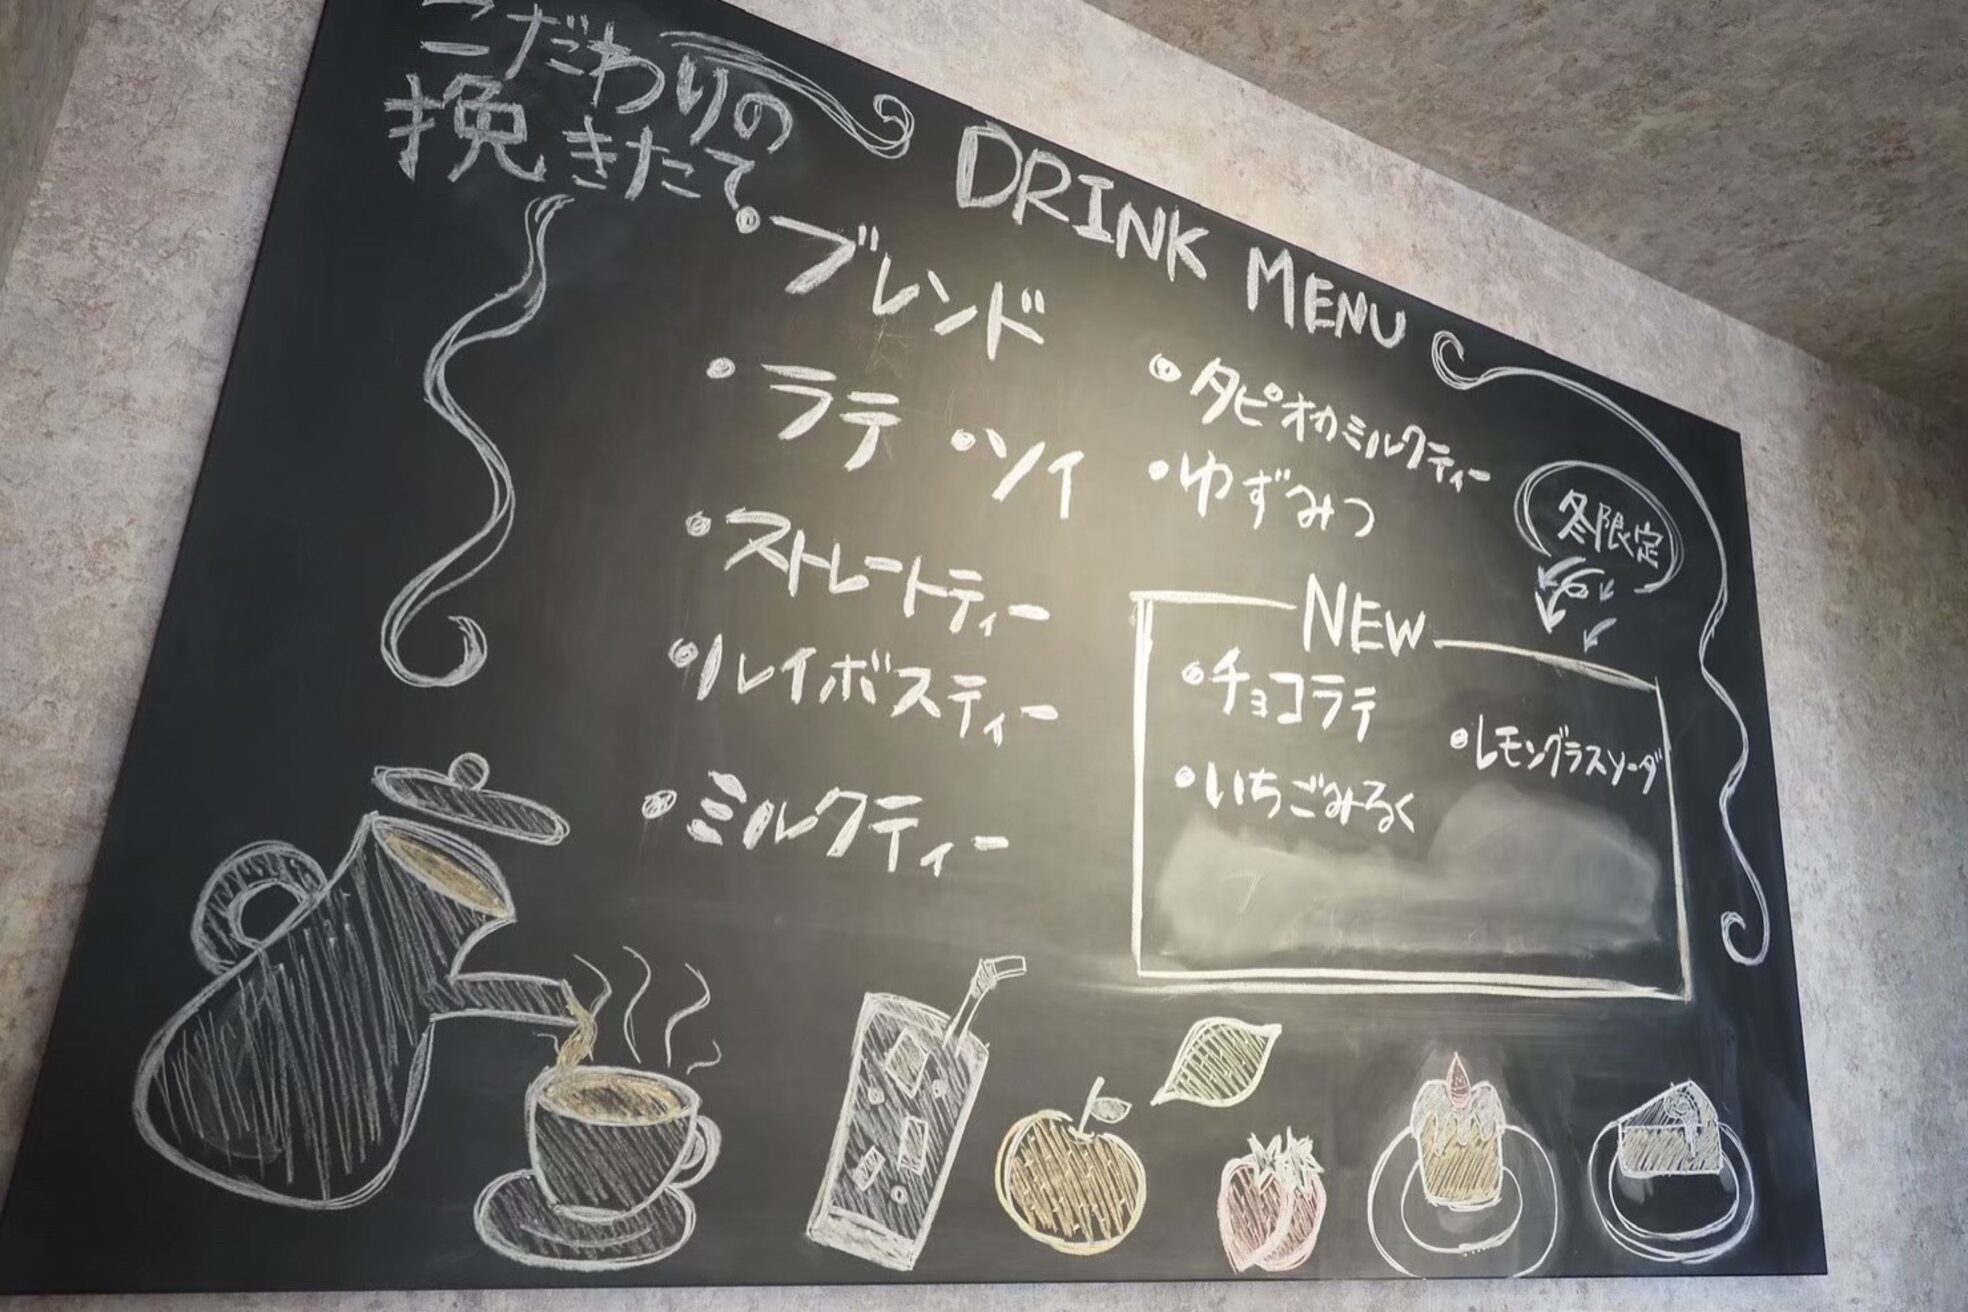 こだわりの
挽きたて
DRINK MENU
・ブレンド
・ラテ ・ソイ
・ストレートティー
・ルイボスティー
・ミルクティー
・タピオカミルクティー
・ゆずみつ
冬限定
NEW
・チョコラテ
・レモングラスソーダ
・いちごみるく